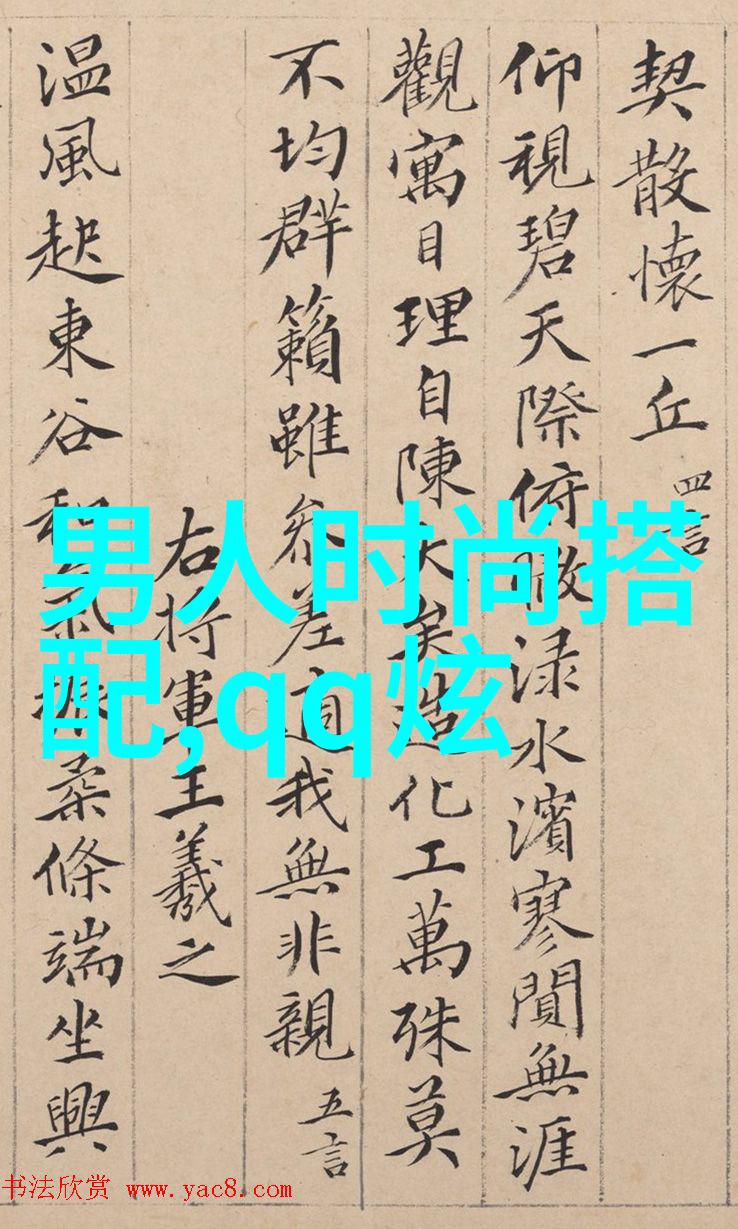 契散懷一丘 四言
仰視碧天際俯瞰淥水濱寥閴無涯
觀寓目理自陳大矣造化工萬殊莫
不均群籟雖參差適我無非親 五言
右將軍王羲之
温風起東谷和氣振柔條端坐興
男人时尚搭
配,qq炫
书法欣赏 www.yac8.com